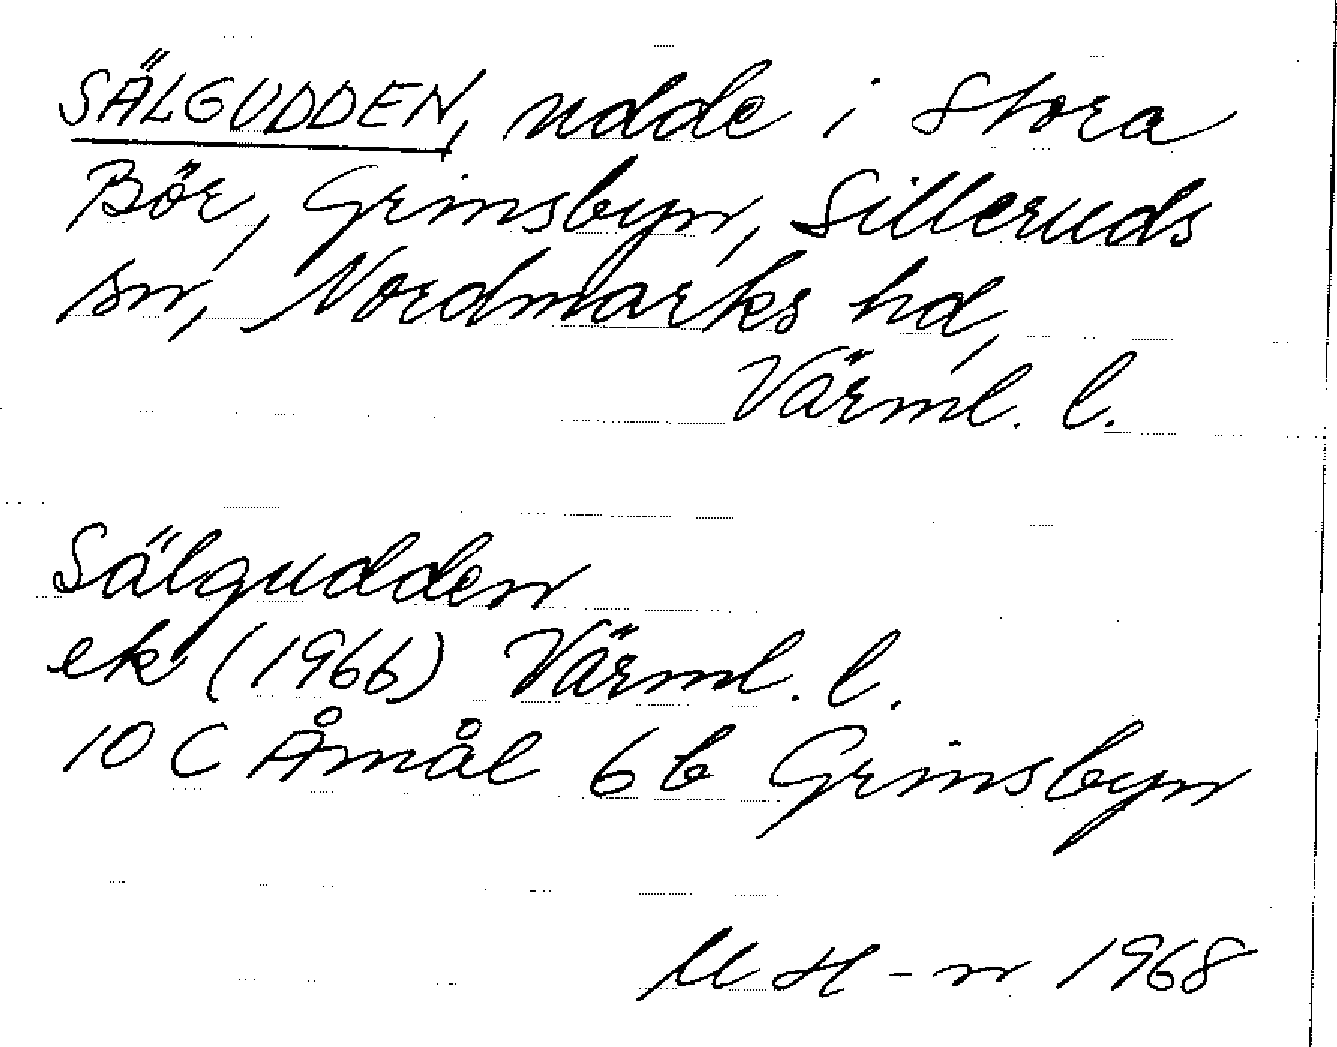 SÄLGUDDEN, udde i Stora
Bör, Grinsbyn, Silleruds
sn, Nordmarks hd,
Värml. l.
Sälgudden
ek (1966) Värml. l.
10 C Åmål 6 b Grinsbyn
M H-n 1968